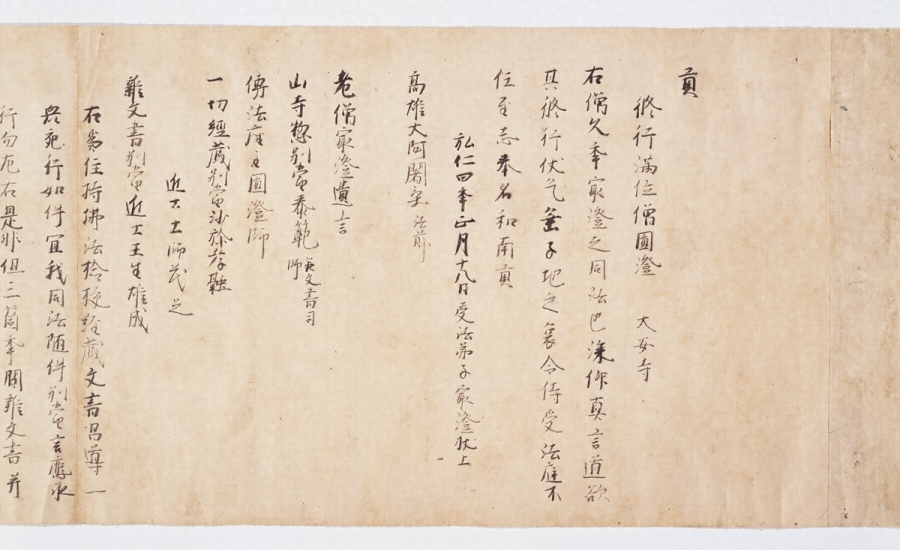 貢
修行満位僧圓澄 大安寺
右僧久年最澄之同法也深仰真言道欲
其修行伏乞垂子地之哀令侍受法庭不
任至志奉名和南貢
弘仁四年正月十八日受法弟子最澄状上
高雄大阿闍梨 法前
老僧最澄遺言
山寺惣別當泰範師 兼文書司
傳法座主圓澄師
一切經蔵別當沙弥孝融
近士土師茂足
雜文書別當近士壬生雄成
右為住持佛法撿挍經蔵文書唱導一
衆充行如件宜我同法随件別當言應承
行勿左右是非但三箇年間雜文書并